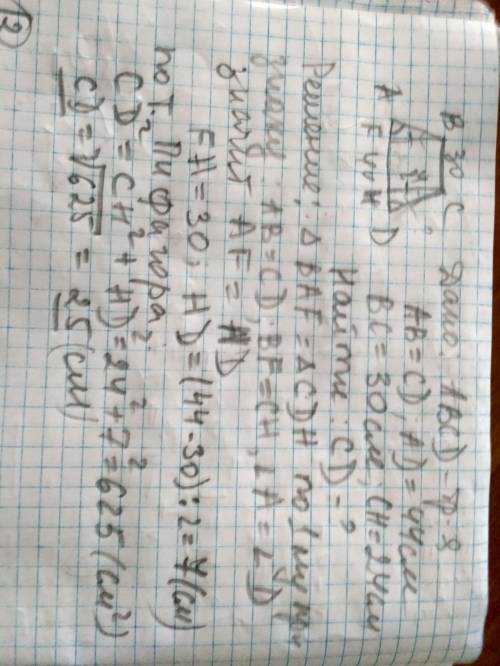 ②
B 30 C
A F 44 H D
Дано: ABCD - тр-я
AB=CD, AD=44см
BC=30см, CH=24см
Найти: CD - ?
Решение: Δ BAF = Δ CDH по 1му при
знаку: AB=CD, BF=CH, ∠A=∠D
значит AF = HD
FH=30, HD=(44-30):2=7(см)
по Т. Пифагора
CD²=CH²+HD²=24²+7²=625(см²)
CD=√625=25(см)